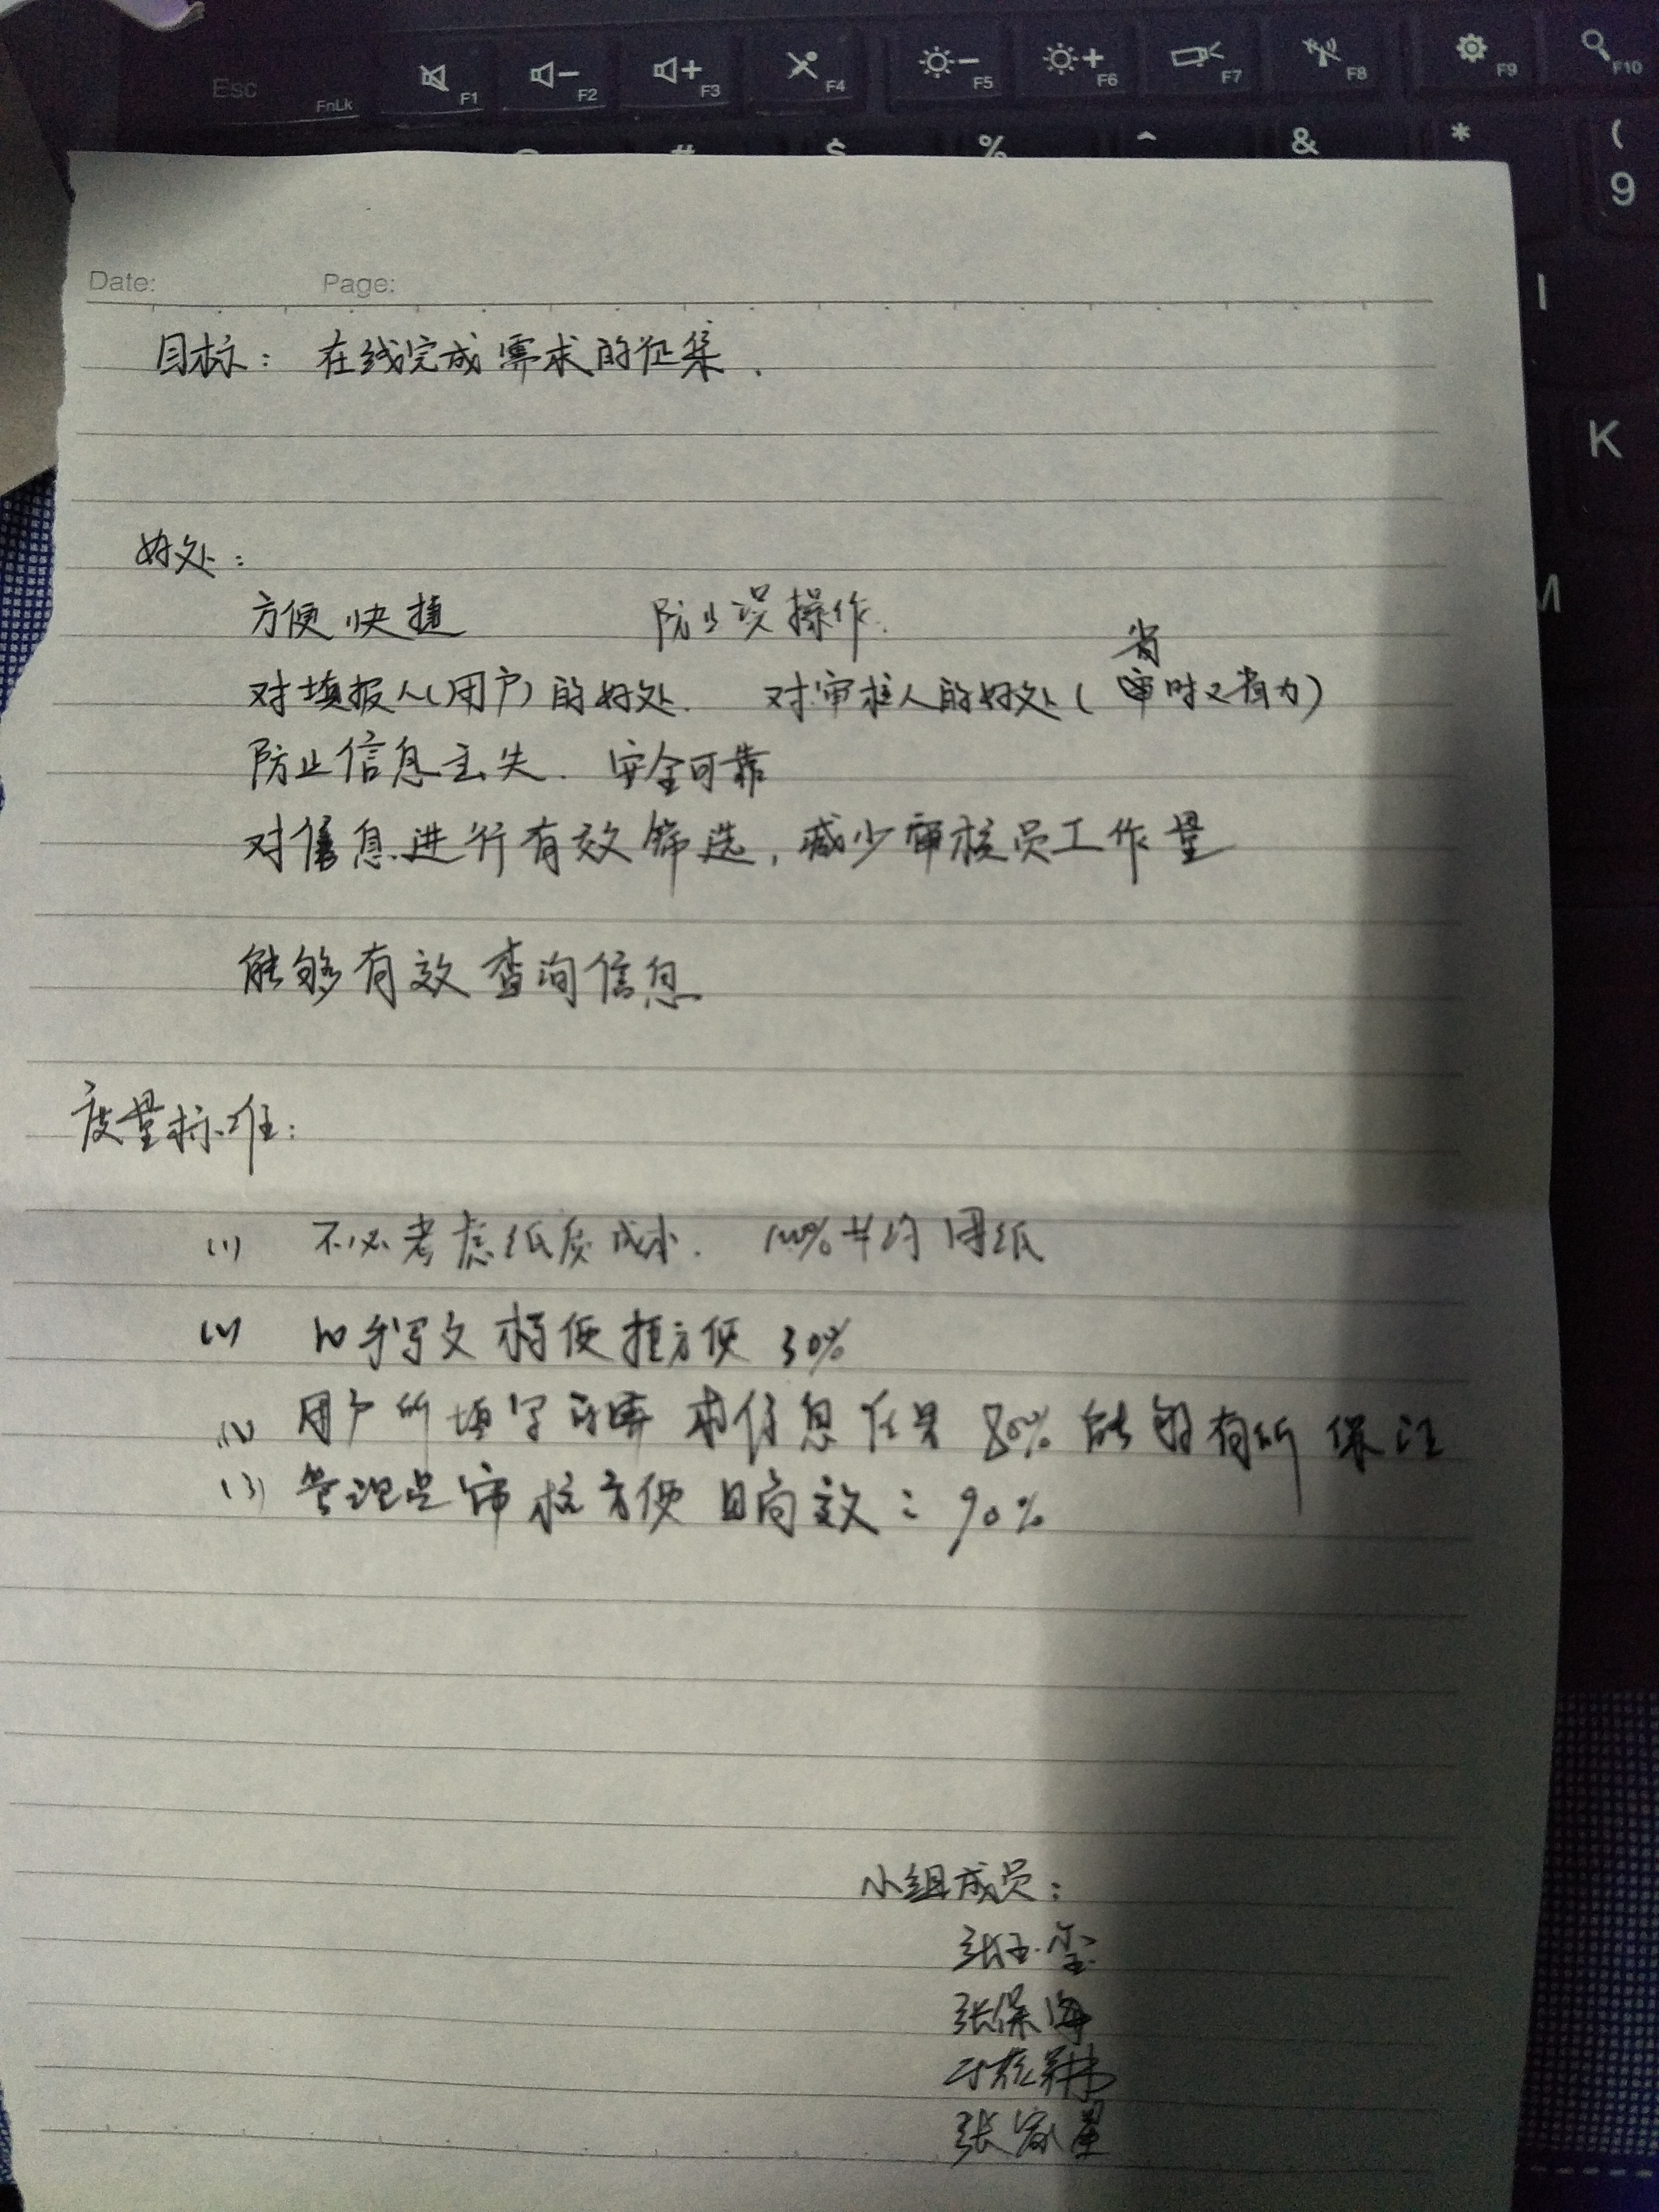 Esc FnLk F1 F2 F3 F4 F5 F6 F7 F8 F9 F10
# $ % ^ & * (
9
Date: Page:
I
目标：在线完成需求的征集．
K
好处：
方便快捷 防止误操作．
M
省
对填报人(用户)的好处． 对审核人的好处(时又省力)
防止信息丢失．安全可靠
对信息进行有效筛选，减少审核员工作量
能够有效查询信息
度量标准：
(1) 不必考虑纸质成本． 100% 用纸
(2) 比手写文档便捷方便 30%
用户所填写的需求信息 80% 能够有所保证
(3) 管理员审核方便且高效：90%
小组成员：
张玉莹
张保海
张家量